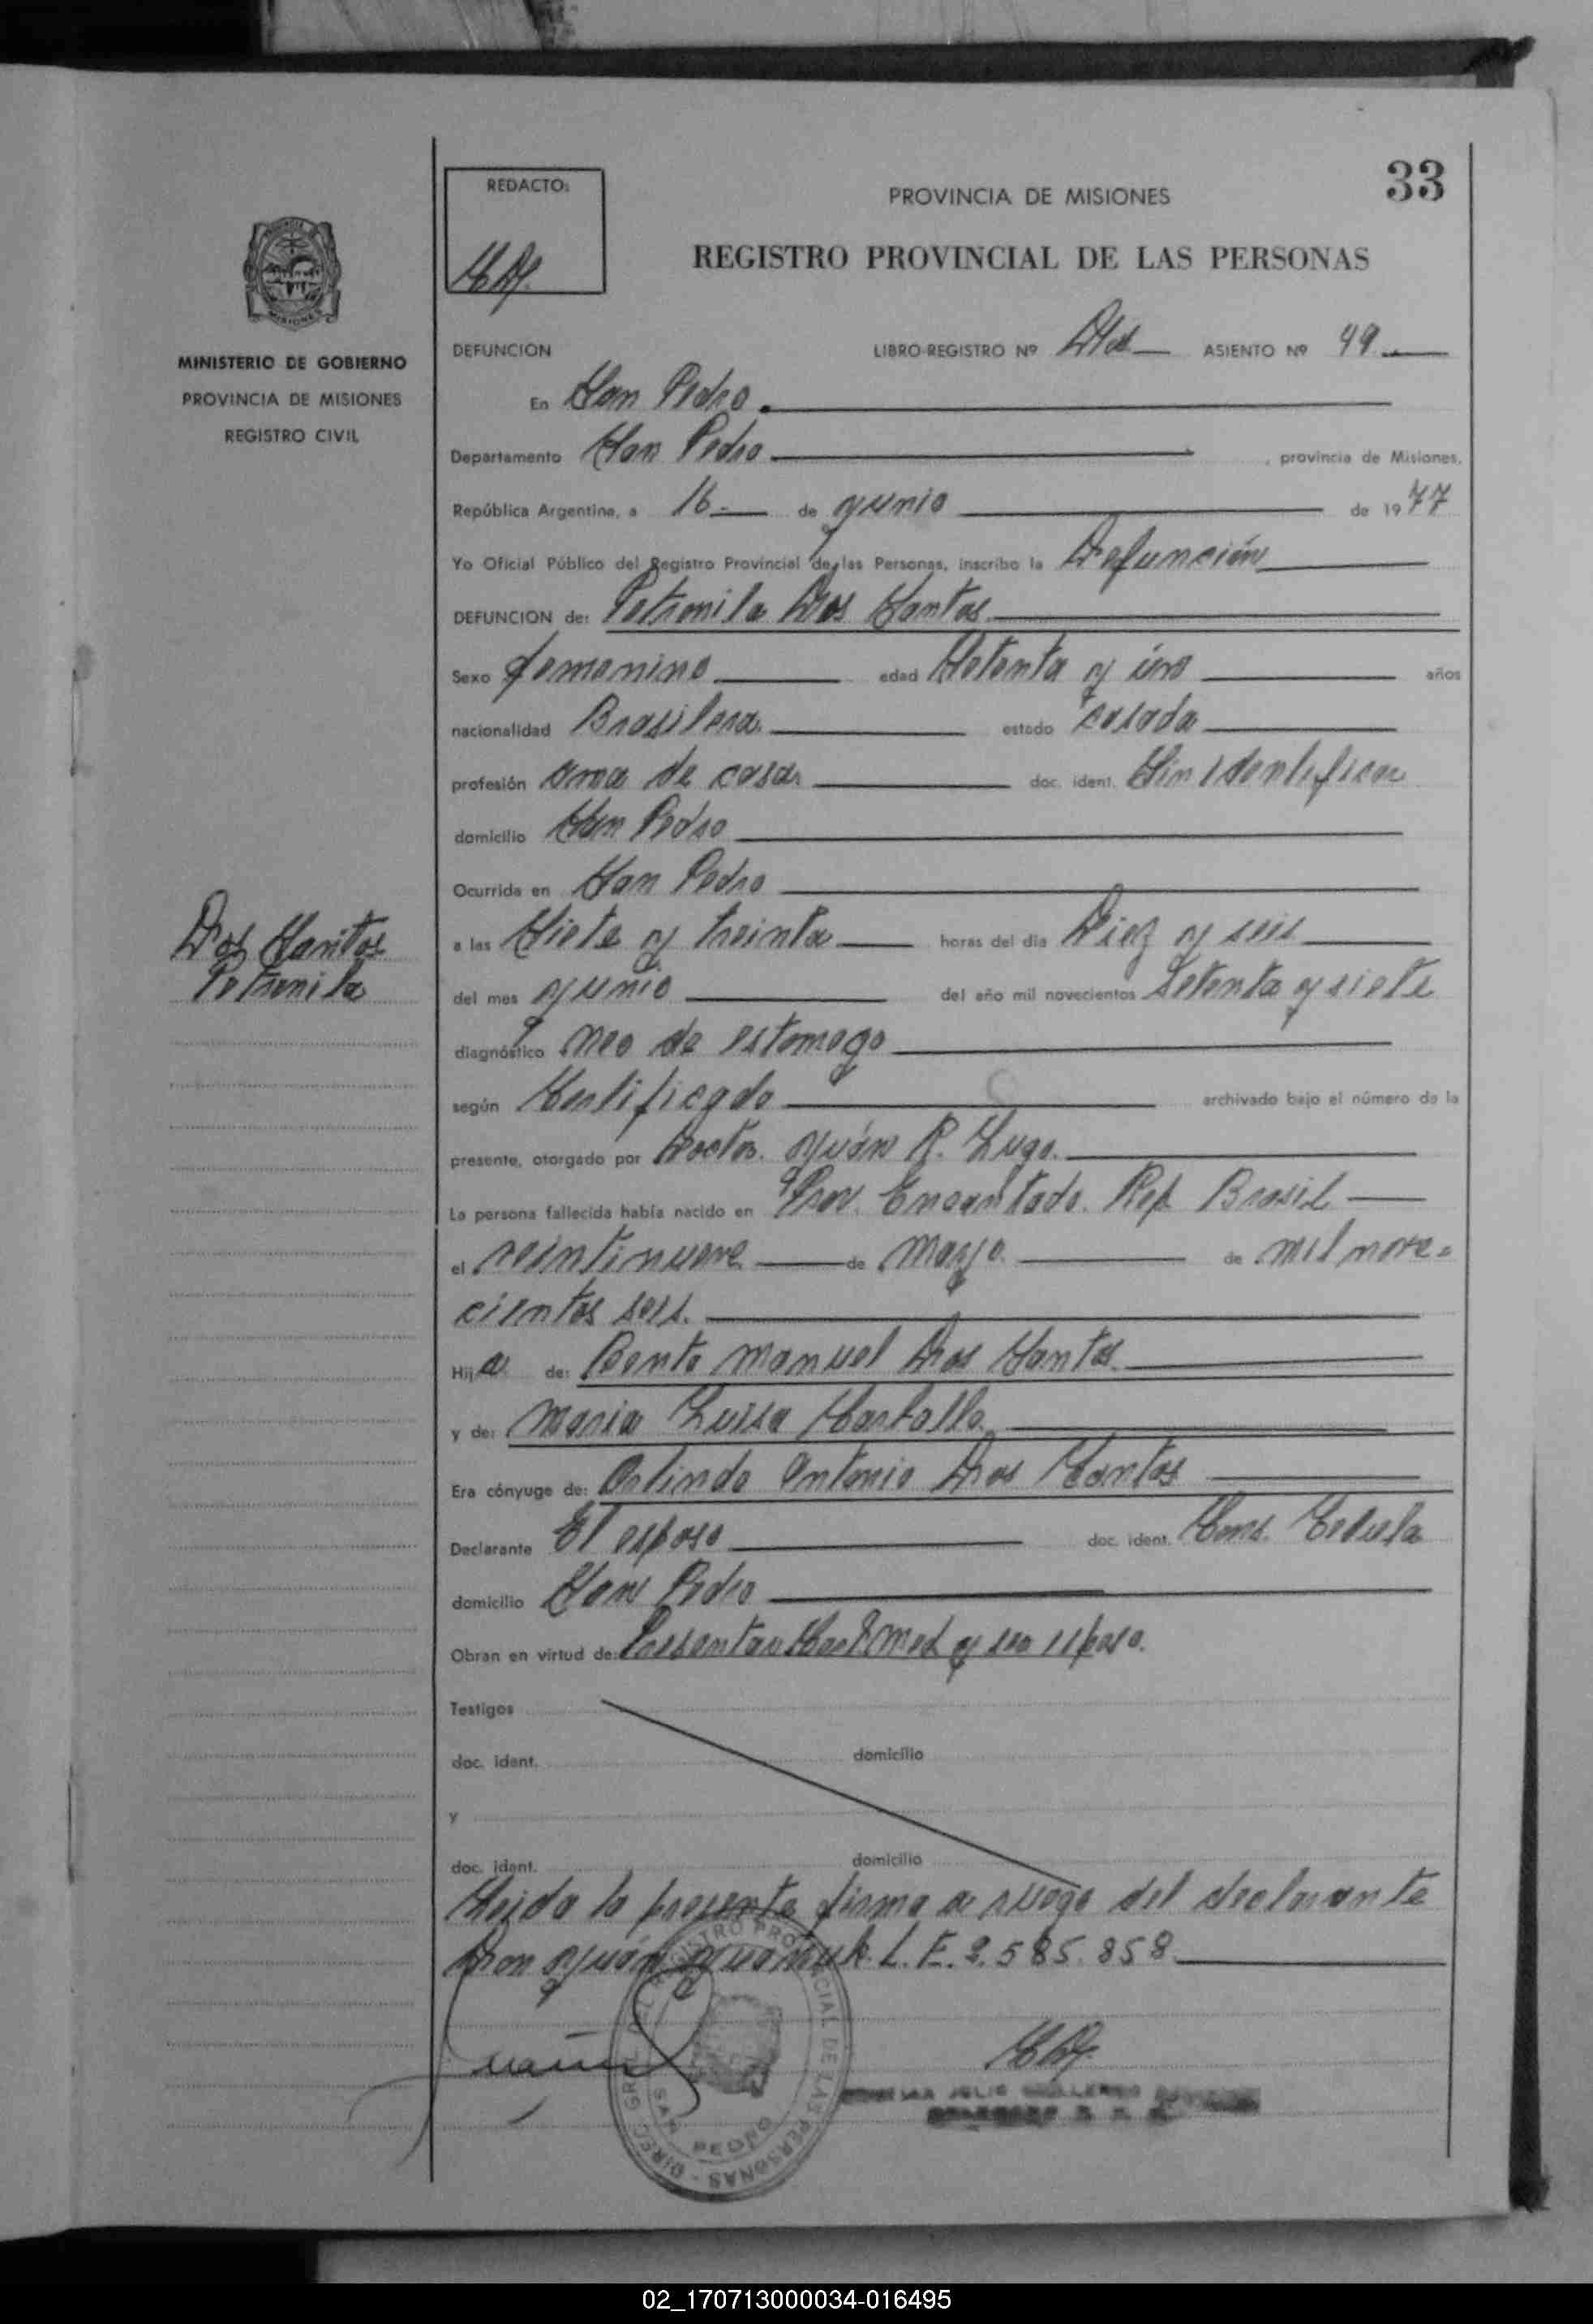 33
REDACTO:
PROVINCIA DE MISIONES
REGISTRO PROVINCIAL DE LAS PERSONAS
MINISTERIO DE GOBIERNO
PROVINCIA DE MISIONES
REGISTRO CIVIL
DEFUNCION LIBRO-REGISTRO Nº ASIENTO Nº 49
En San Pedro
Departamento San Pedro, provincia de Misiones.
República Argentina, a 16 de Junio de 1977
Yo Oficial Público del Registro Provincial de las Personas, inscribo la Defunción
DEFUNCION de: Petronila Dos Santos
Sexo femenino edad Setenta y úno años
nacionalidad Brasilera estado casada
profesión ama de casa doc. ident. Sin identificar
domicilio San Pedro
Ocurrida en San Pedro
Dos Santos
Petronila
a las Siete y treinta horas del día Diez y seis
del mes Junio del año mil novecientos Setenta y siete
diagnóstico Neo de estomago
según Certificado archivado bajo el número de la
presente, otorgado por Doctor. Juán R. Lugo.
La persona fallecida había nacido en Prov. Encantado. Rep. Brasil
el veintinueve de Mayo de mil nove=
cientos seis.
Hija de: Bento Manuel Dos Santos
y de: Maria Luisa
Era cónyuge de: Orlindo Antonio Dos Santos
Declarante El esposo doc. ident. Cons. Cedula
domicilio San Pedro
Obran en virtud de: Presentar Cert Med y ser esposo.
Testigos
doc. ident. domicilio
y
doc. ident. domicilio
Leida la presente firma a ruego del declarante
Don Juán L.E. 2.585.858
DIREC. GRAL. DEL REGISTRO PROVINCIAL DE LAS PERSONAS -
SAN PEDRO
02_170713000034-016495